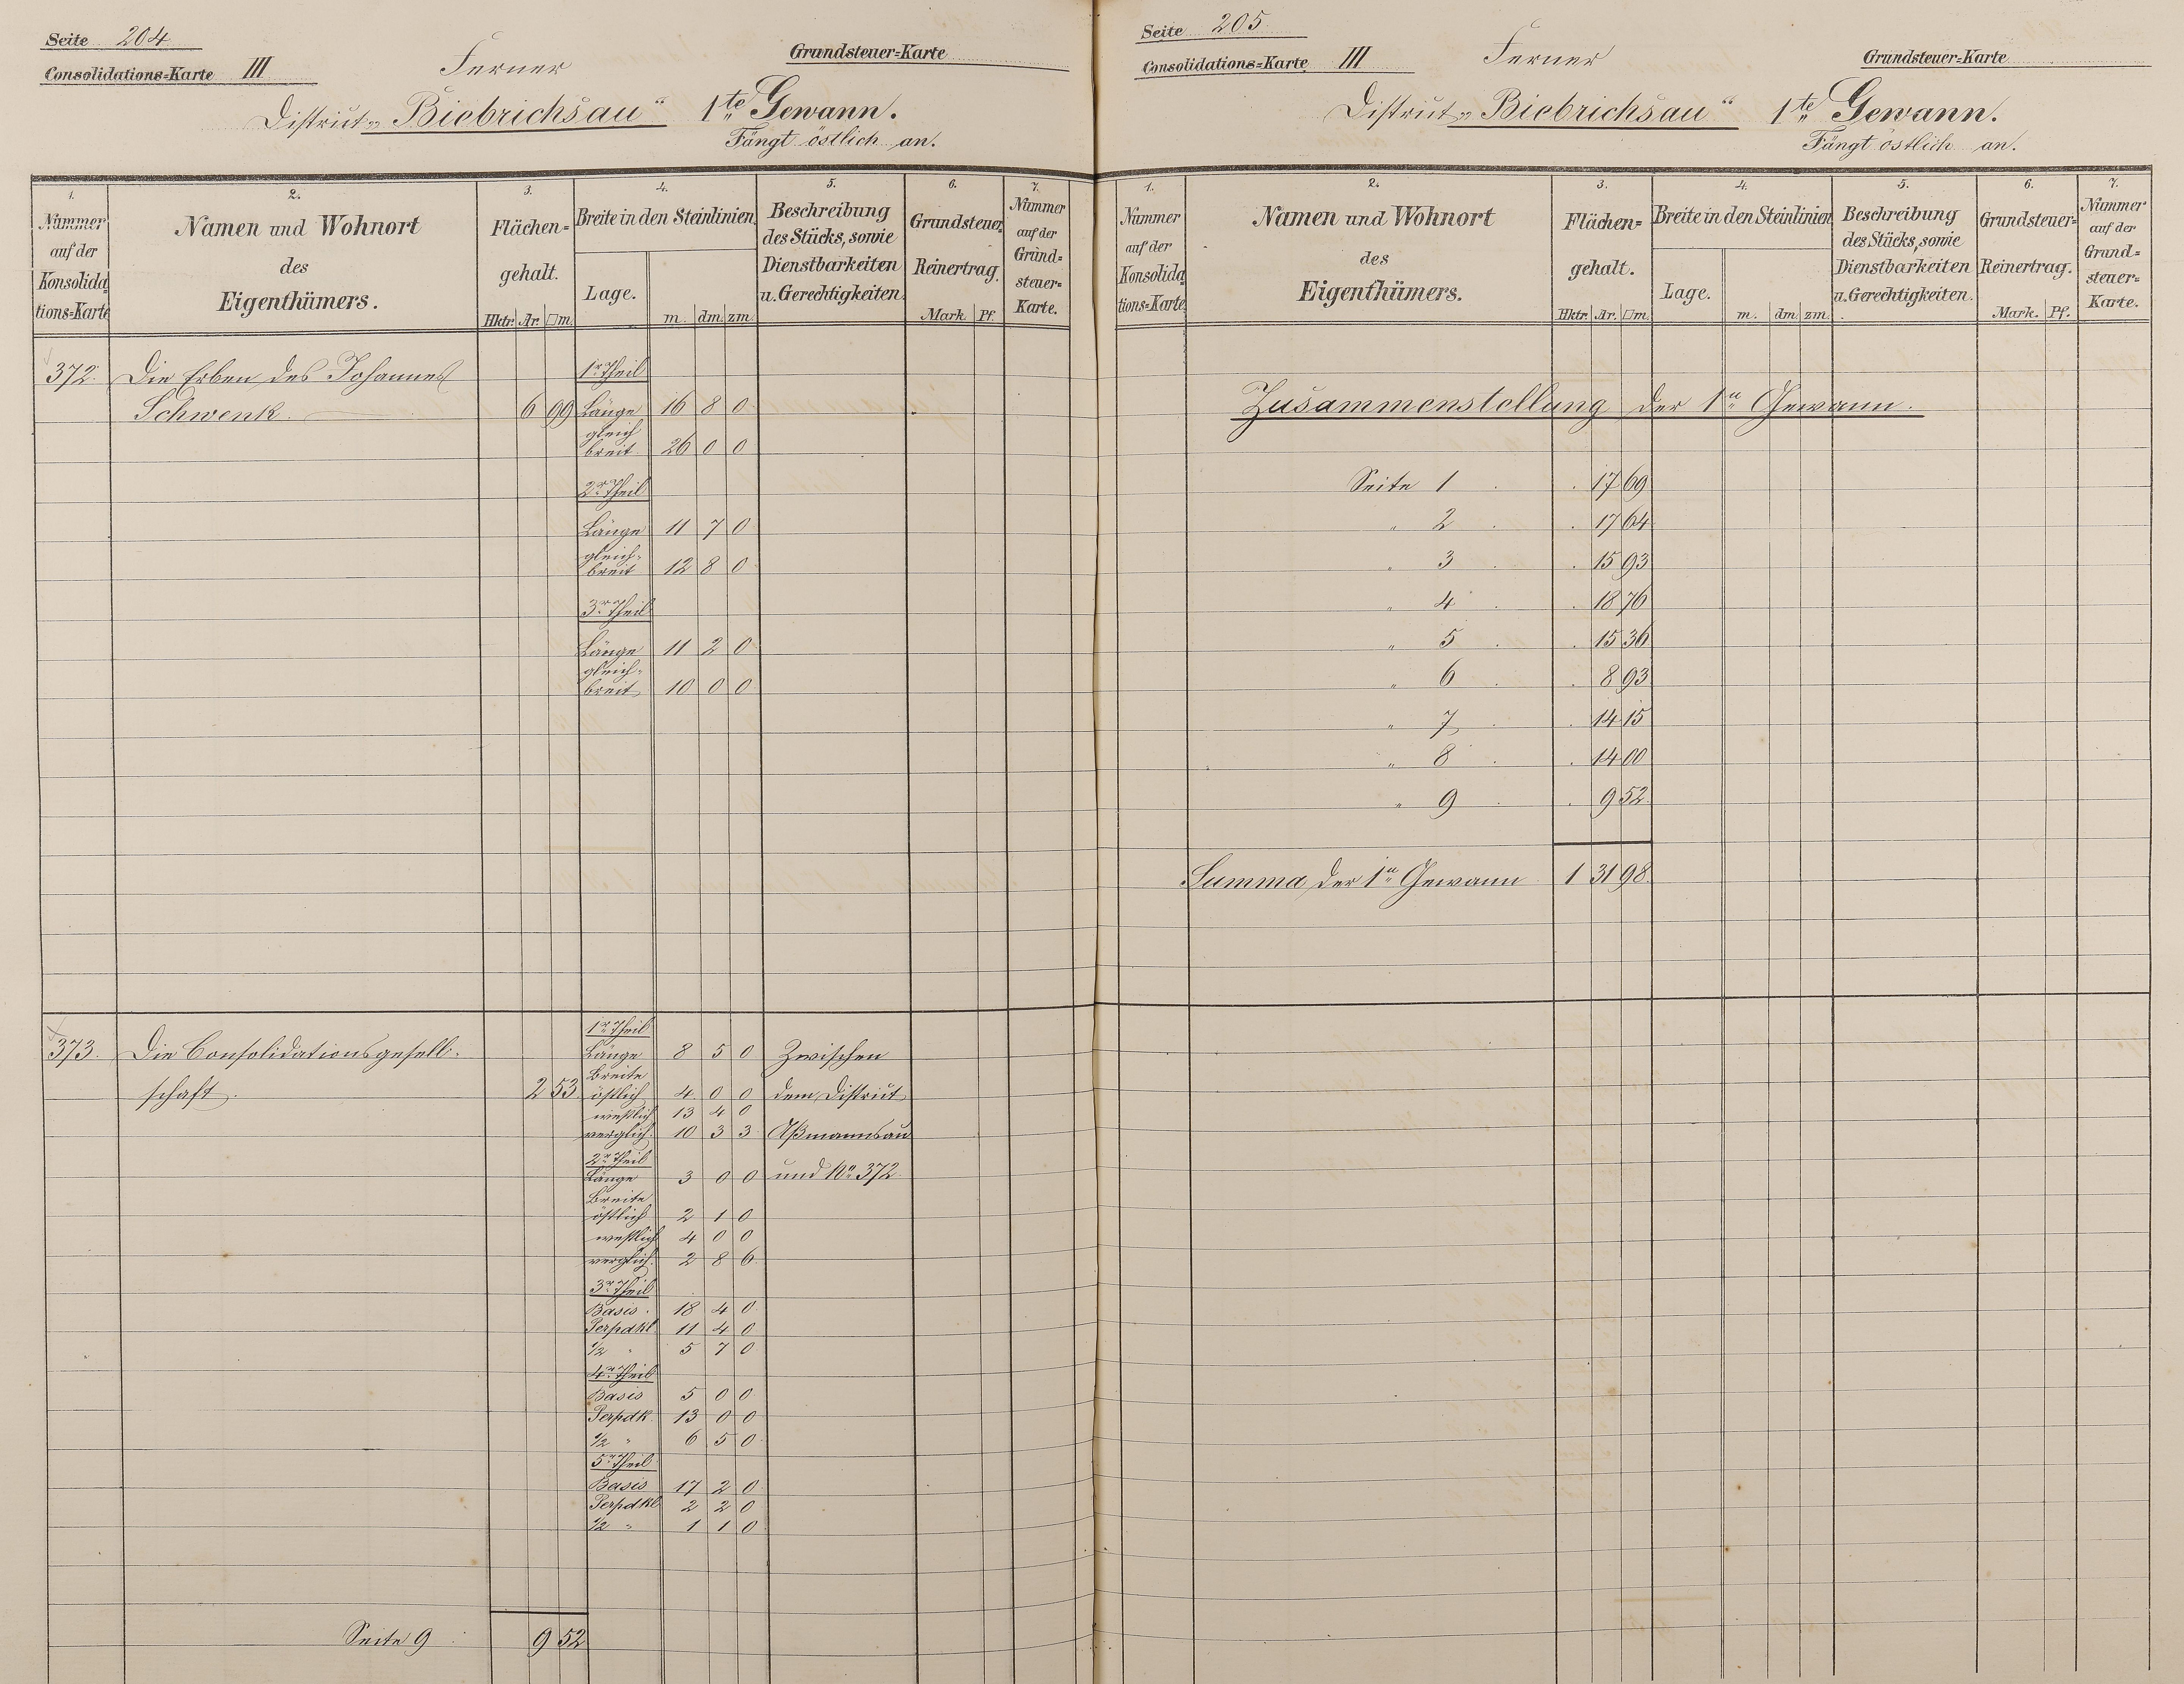 Seite 204
Consolidations=Karte III
Ferner
Grundsteuer=Karte
District „Biebrichsau“ 1te Gewann.
Fängt östlich an.
1. 2. 3. 4. 5. 6. 7.
Nummer auf der Konsolidations=Karte
Namen und Wohnort des Eigenthümers.
Flächen=gehalt.
Hktr. Ar. □m.
Breite in den Steinlinien
Lage. m. dm. zm.
Beschreibung des Stücks, sowie Dienstbarkeiten u. Gerechtigkeiten.
Grundsteuer=Reinertrag.
Mark Pf.
Nummer auf der Grund=steuer=Karte.
372. Die Erben des Johannes 1r Theil
Schwenk. 6 99 Länge 16 8 0
gleich
breit 26 0 0
2r Theil
Länge 11 7 0
gleich=
breit 12 8 0
3r Theil
Länge 11 2 0
gleich=
breit 10 0 0
1r Theil
373. Die Consolidationsgesell= Länge 8 5 0 Zwischen
Breite
schaft. 2 53 östlich 4 0 0 dem District
westlich 13 4 0
verglich. 10 3 3 Aßmannsau
2r Theil
Länge 3 0 0 und No 372.
Breite
östlich 2 1 0
westlich 4 0 0
verglich. 2 8 6
3r Theil
Basis. 18 4 0
Perpdkl 11 4 0
1/2 " 5 7 0
4r Theil
Basis 5 0 0
Perpdk. 13 0 0
1/2 " 6 5 0
5r Theil
Basis 17 2 0
Perpdkl 2 2 0
1/2 " 1 1 0
Seite 9 9 52
Seite 205
Consolidations=Karte III
Ferner
Grundsteuer=Karte
District „Biebrichsau“ 1te Gewann.
Fängt östlich an.
1. 2. 3. 4. 5. 6. 7.
Nummer auf der Konsolidations=Karte
Namen und Wohnort des Eigenthümers.
Flächen=gehalt.
Hktr. Ar. □m.
Breite in den Steinlinien
Lage. m. dm. zm.
Beschreibung des Stücks, sowie Dienstbarkeiten u. Gerechtigkeiten.
Grundsteuer=Reinertrag.
Mark. Pf.
Nummer auf der Grund=steuer=Karte.
Zusammenstellung der 1n Gewann.
Seite 1 . . 17 69
" 2 . . 17 64
" 3 . . 15 93
" 4 . . 18 76
" 5 . . 15 36
" 6 . . 8 93
" 7 . . 14 15
" 8 . . 14 00
" 9 . . 9 52
Summa der 1n Gewann 1 31 98